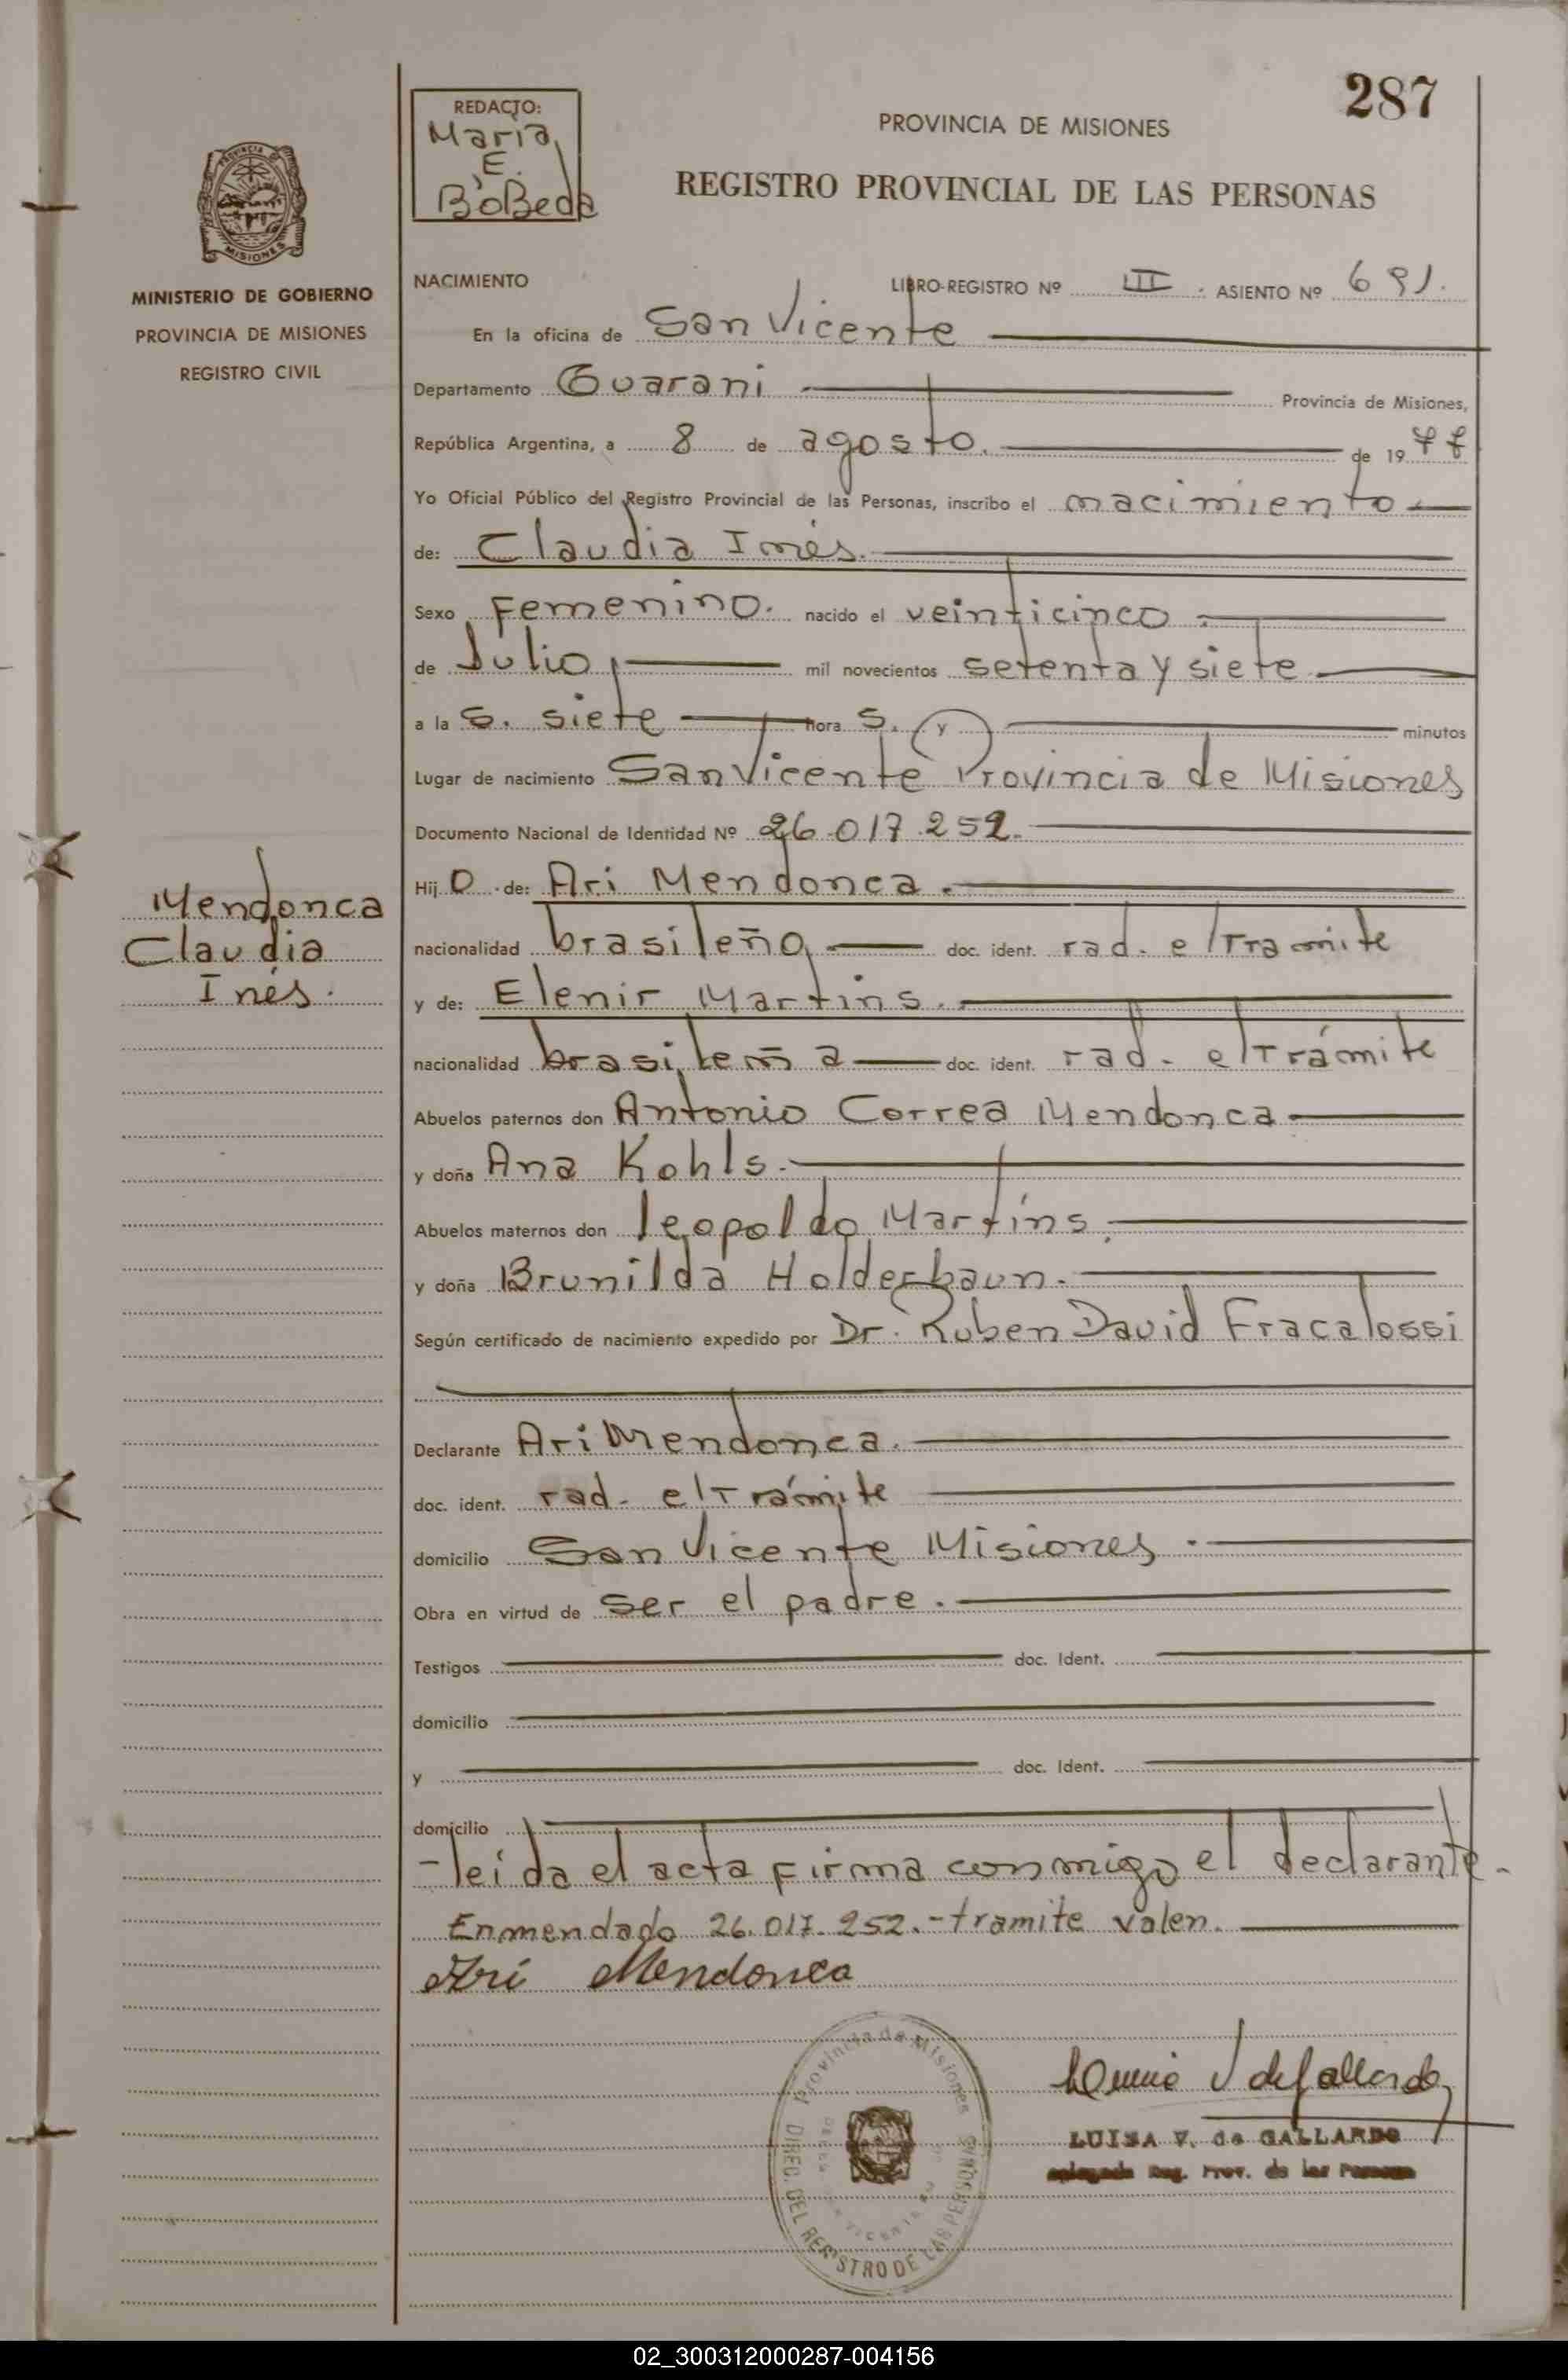 287
REDACTO:
Maria
E.
BoBeda
PROVINCIA DE MISIONES
REGISTRO PROVINCIAL DE LAS PERSONAS
PROVINCIA DE
MISIONES
MINISTERIO DE GOBIERNO
PROVINCIA DE MISIONES
REGISTRO CIVIL
NACIMIENTO LIBRO-REGISTRO Nº III. ASIENTO Nº 691.
En la oficina de San Vicente
Departamento Guarani Provincia de Misiones,
República Argentina, a 8 de agosto. de 19 77
Yo Oficial Público del Registro Provincial de las Personas, inscribo el nacimiento
de: Claudia Inés.
Sexo Femenino. nacido el veinticinco.
de Julio, mil novecientos setenta y siete
a la s. siete hora s. y minutos
Lugar de nacimiento San Vicente Provincia de Misiones
Documento Nacional de Identidad Nº 26.017.252.
Hij o de: Ari Mendonca.
Mendonca
Claudia
Inés.
nacionalidad brasileño, doc. ident. rad. e/Tramite
y de: Elenir Martins.
nacionalidad brasileña doc. ident. rad. e/Trámite
Abuelos paternos don Antonio Correa Mendonca
y doña Ana Kohls.
Abuelos maternos don leopoldo Martíns.
y doña Brunilda Holderbaun.
Según certificado de nacimiento expedido por Dr. Ruben David Fracalossi
Declarante Ari Mendonca.
doc. ident. rad. e/Trámite
domicilio San Vicente Misiones.
Obra en virtud de ser el padre.
Testigos doc. Ident.
domicilio
y doc. Ident.
domicilio
-leida el acta firma conmigo el declarante.
Enmendado 26.017.252.-tramite valen.
Ari Mendonca
Provincia de Misiones
DIREC. DEL REGISTRO DE LAS PERSONAS
LUISA V. de GALLARDO
Reg. Prov. de las Personas
02_300312000287-004156